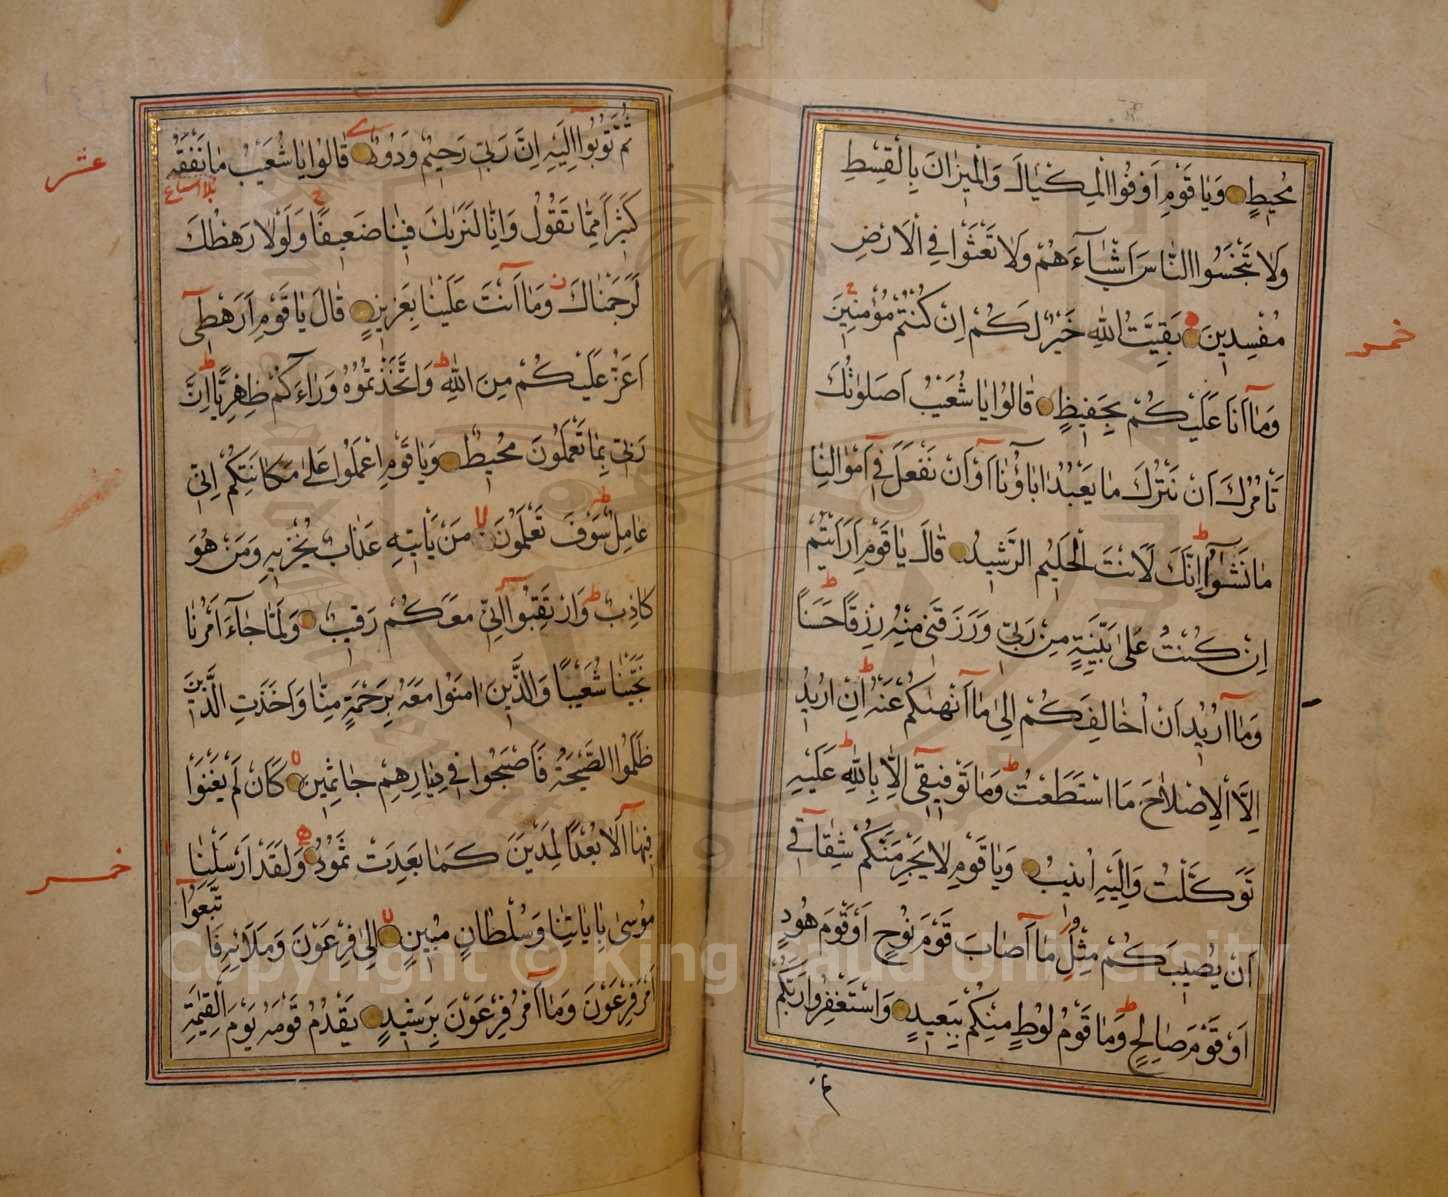 مُحِيطٍ وَيَا قَوْمِ اَوْفُوا الْمِكْيَالَ وَالْمِيزَانَ بِالْقِسْطِ
وَلَا تَبْخَسُوا النَّاسَ اَشْيَآءَهُمْ وَلَا تَعْثَوْا فِي الْاَرْضِ
مُفْسِدِينَ بَقِيَّتُ اللّٰهِ خَيْرٌ لَكُمْ اِنْ كُنْتُمْ مُؤْمِنِينَ
خمس
وَمَآ اَنَا عَلَيْكُمْ بِحَفِيظٍ قَالُوا يَا شُعَيْبُ اَصَلٰوتُكَ
تَاْمُرُكَ اَنْ نَتْرُكَ مَا يَعْبُدُ اٰبَآؤُنَآ اَوْ اَنْ نَفْعَلَ فِيٓ اَمْوَالِنَا
مَا نَشٰٓؤُا اِنَّكَ لَاَنْتَ الْحَلِيمُ الرَّشِيدُ قَالَ يَا قَوْمِ اَرَاَيْتُمْ
اِنْ كُنْتُ عَلٰى بَيِّنَةٍ مِنْ رَبِّي وَرَزَقَنِي مِنْهُ رِزْقًا حَسَنًا
وَمَآ اُرِيدُ اَنْ اُخَالِفَكُمْ اِلٰى مَآ اَنْهٰيكُمْ عَنْهُ اِنْ اُرِيدُ
اِلَّا الْاِصْلَاحَ مَا اسْتَطَعْتُ وَمَا تَوْفِيقِيٓ اِلَّا بِاللّٰهِ عَلَيْهِ
تَوَكَّلْتُ وَاِلَيْهِ اُنِيبُ وَيَا قَوْمِ لَا يَجْرِمَنَّكُمْ شِقَاقِيٓ
اَنْ يُصِيبَكُمْ مِثْلُ مَآ اَصَابَ قَوْمَ نُوحٍ اَوْ قَوْمَ هُودٍ
اَوْ قَوْمَ صَالِحٍ وَمَا قَوْمُ لُوطٍ مِنْكُمْ بِبَعِيدٍ وَاسْتَغْفِرُوا رَبَّكُمْ
ثُمَّ تُوبُوٓا اِلَيْهِ اِنَّ رَبِّي رَحِيمٌ وَدُودٌ قَالُوا يَا شُعَيْبُ مَا نَفْقَهُ
عشر
كَثِيرًا مِمَّا تَقُولُ وَاِنَّا لَنَرٰيكَ فِينَا ضَعِيفًا وَلَوْلَا رَهْطُكَ
لَرَجَمْنَاكَ وَمَآ اَنْتَ عَلَيْنَا بِعَزِيزٍ قَالَ يَا قَوْمِ اَرَهْطِيٓ
اَعَزُّ عَلَيْكُمْ مِنَ اللّٰهِ وَاتَّخَذْتُمُوهُ وَرَآءَكُمْ ظِهْرِيًّا اِنَّ
رَبِّي بِمَا تَعْمَلُونَ مُحِيطٌ وَيَا قَوْمِ اعْمَلُوا عَلٰى مَكَانَتِكُمْ اِنِّي
عَامِلٌ سَوْفَ تَعْلَمُونَ مَنْ يَاْتِيهِ عَذَابٌ يُخْزِيهِ وَمَنْ هُوَ
كَاذِبٌ وَارْتَقِبُوٓا اِنِّي مَعَكُمْ رَقِيبٌ وَلَمَّا جَآءَ اَمْرُنَا
نَجَّيْنَا شُعَيْبًا وَالَّذِينَ اٰمَنُوا مَعَهُ بِرَحْمَةٍ مِنَّا وَاَخَذَتِ الَّذِينَ
ظَلَمُوا الصَّيْحَةُ فَاَصْبَحُوا فِي دِيَارِهِمْ جَاثِمِينَ كَاَنْ لَمْ يَغْنَوْا
فِيهَآ اَلَا بُعْدًا لِمَدْيَنَ كَمَا بَعِدَتْ ثَمُودُ وَلَقَدْ اَرْسَلْنَا
خمس
مُوسٰى بِاٰيَاتِنَا وَسُلْطَانٍ مُبِينٍ اِلٰى فِرْعَوْنَ وَمَلَائِهِ فَاتَّبَعُوٓا
اَمْرَ فِرْعَوْنَ وَمَآ اَمْرُ فِرْعَوْنَ بِرَشِيدٍ يَقْدُمُ قَوْمَهُ يَوْمَ الْقِيٰمَةِ
Copyright © King Saud University